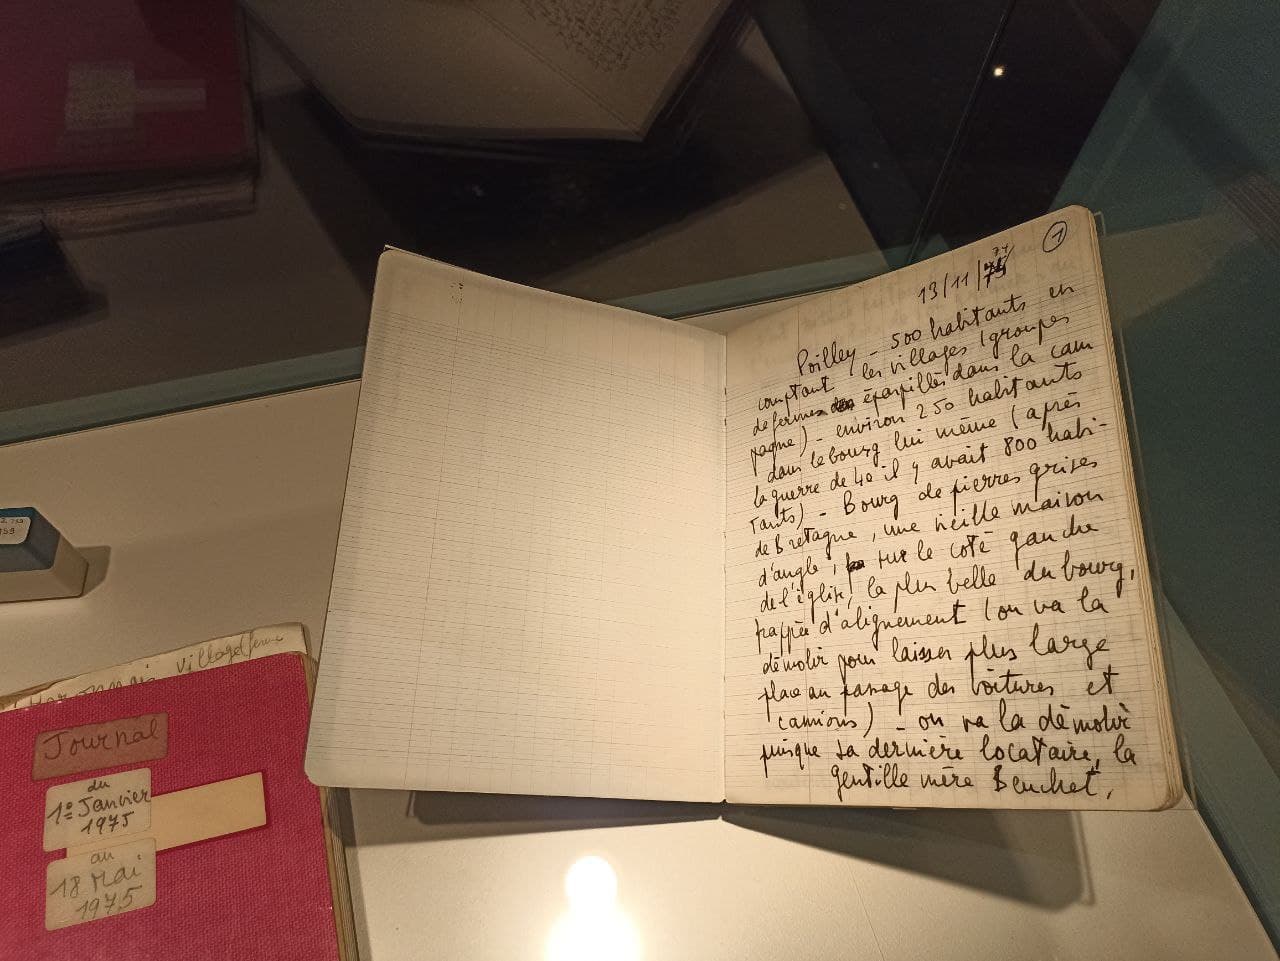 1
13/11/74
Poilley – 500 habitants en
comptant les villages (groupes
de fermes éparpillés dans la cam
pagne) – environ 250 habitants
dans le bourg lui même (après
la guerre de 40 il y avait 800 habi-
tants) – Bourg de pierres grises
de Bretagne, une vieille maison
d'angle, sur le coté gauche
de l'église, la plus belle du bourg,
frappée d'alignement (on va la
démolir pour laisser plus large
place au passage des voitures et
camions) – on va la démolir
puisque sa dernière locataire, la
gentille mère Beuchet,
village
Journal
du
1er Janvier
1975
au
18 Mai
1975